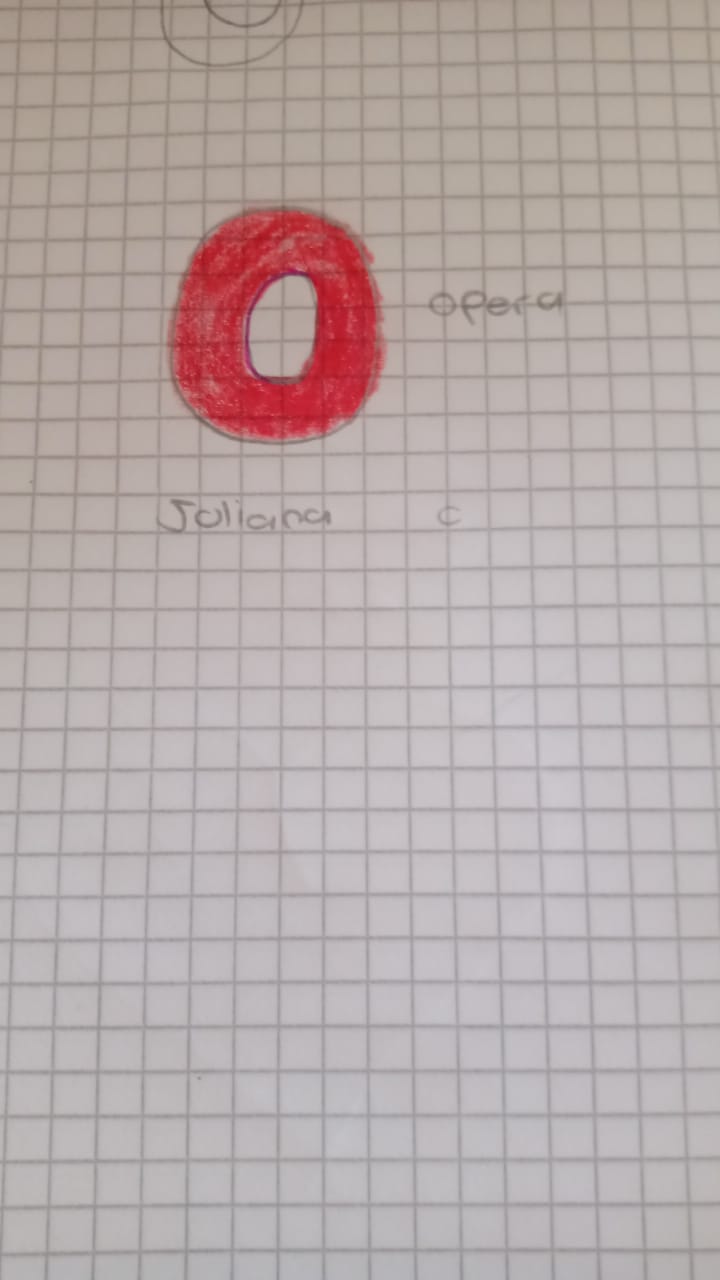 opera
Juliana c